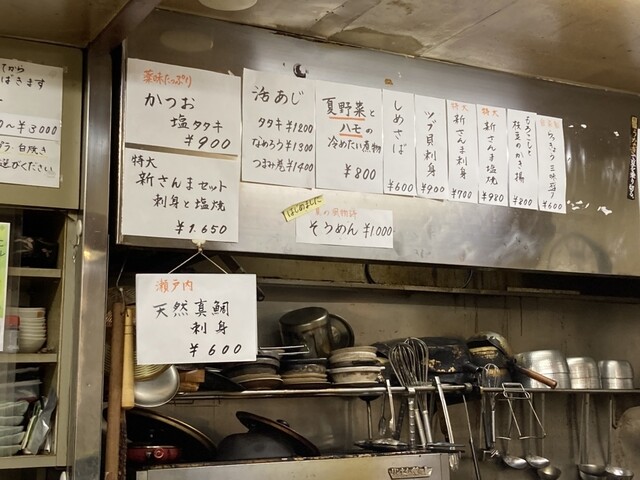 てから
ばきます
0〜¥3000
白焼き
ください
薬味たっぷり
かつお
塩タタキ
¥900
特大
新さんまセット
刺身と塩焼
¥1.650
瀬戸内
天然真鯛
刺身
¥600
活あじ
タタキ¥1200
なめろう¥1300
つまみ巻¥1400
夏野菜と
ハモの
冷めたい煮物
¥800
しめさば
¥600
ツブ貝刺身
¥900
特大
新さんま刺身
¥700
特大
新さんま塩焼
¥980
とうもろこしと
枝豆のかき揚
¥800
らっきょう三味
¥600
はじめました
夏の風物詩
そうめん ¥1.000